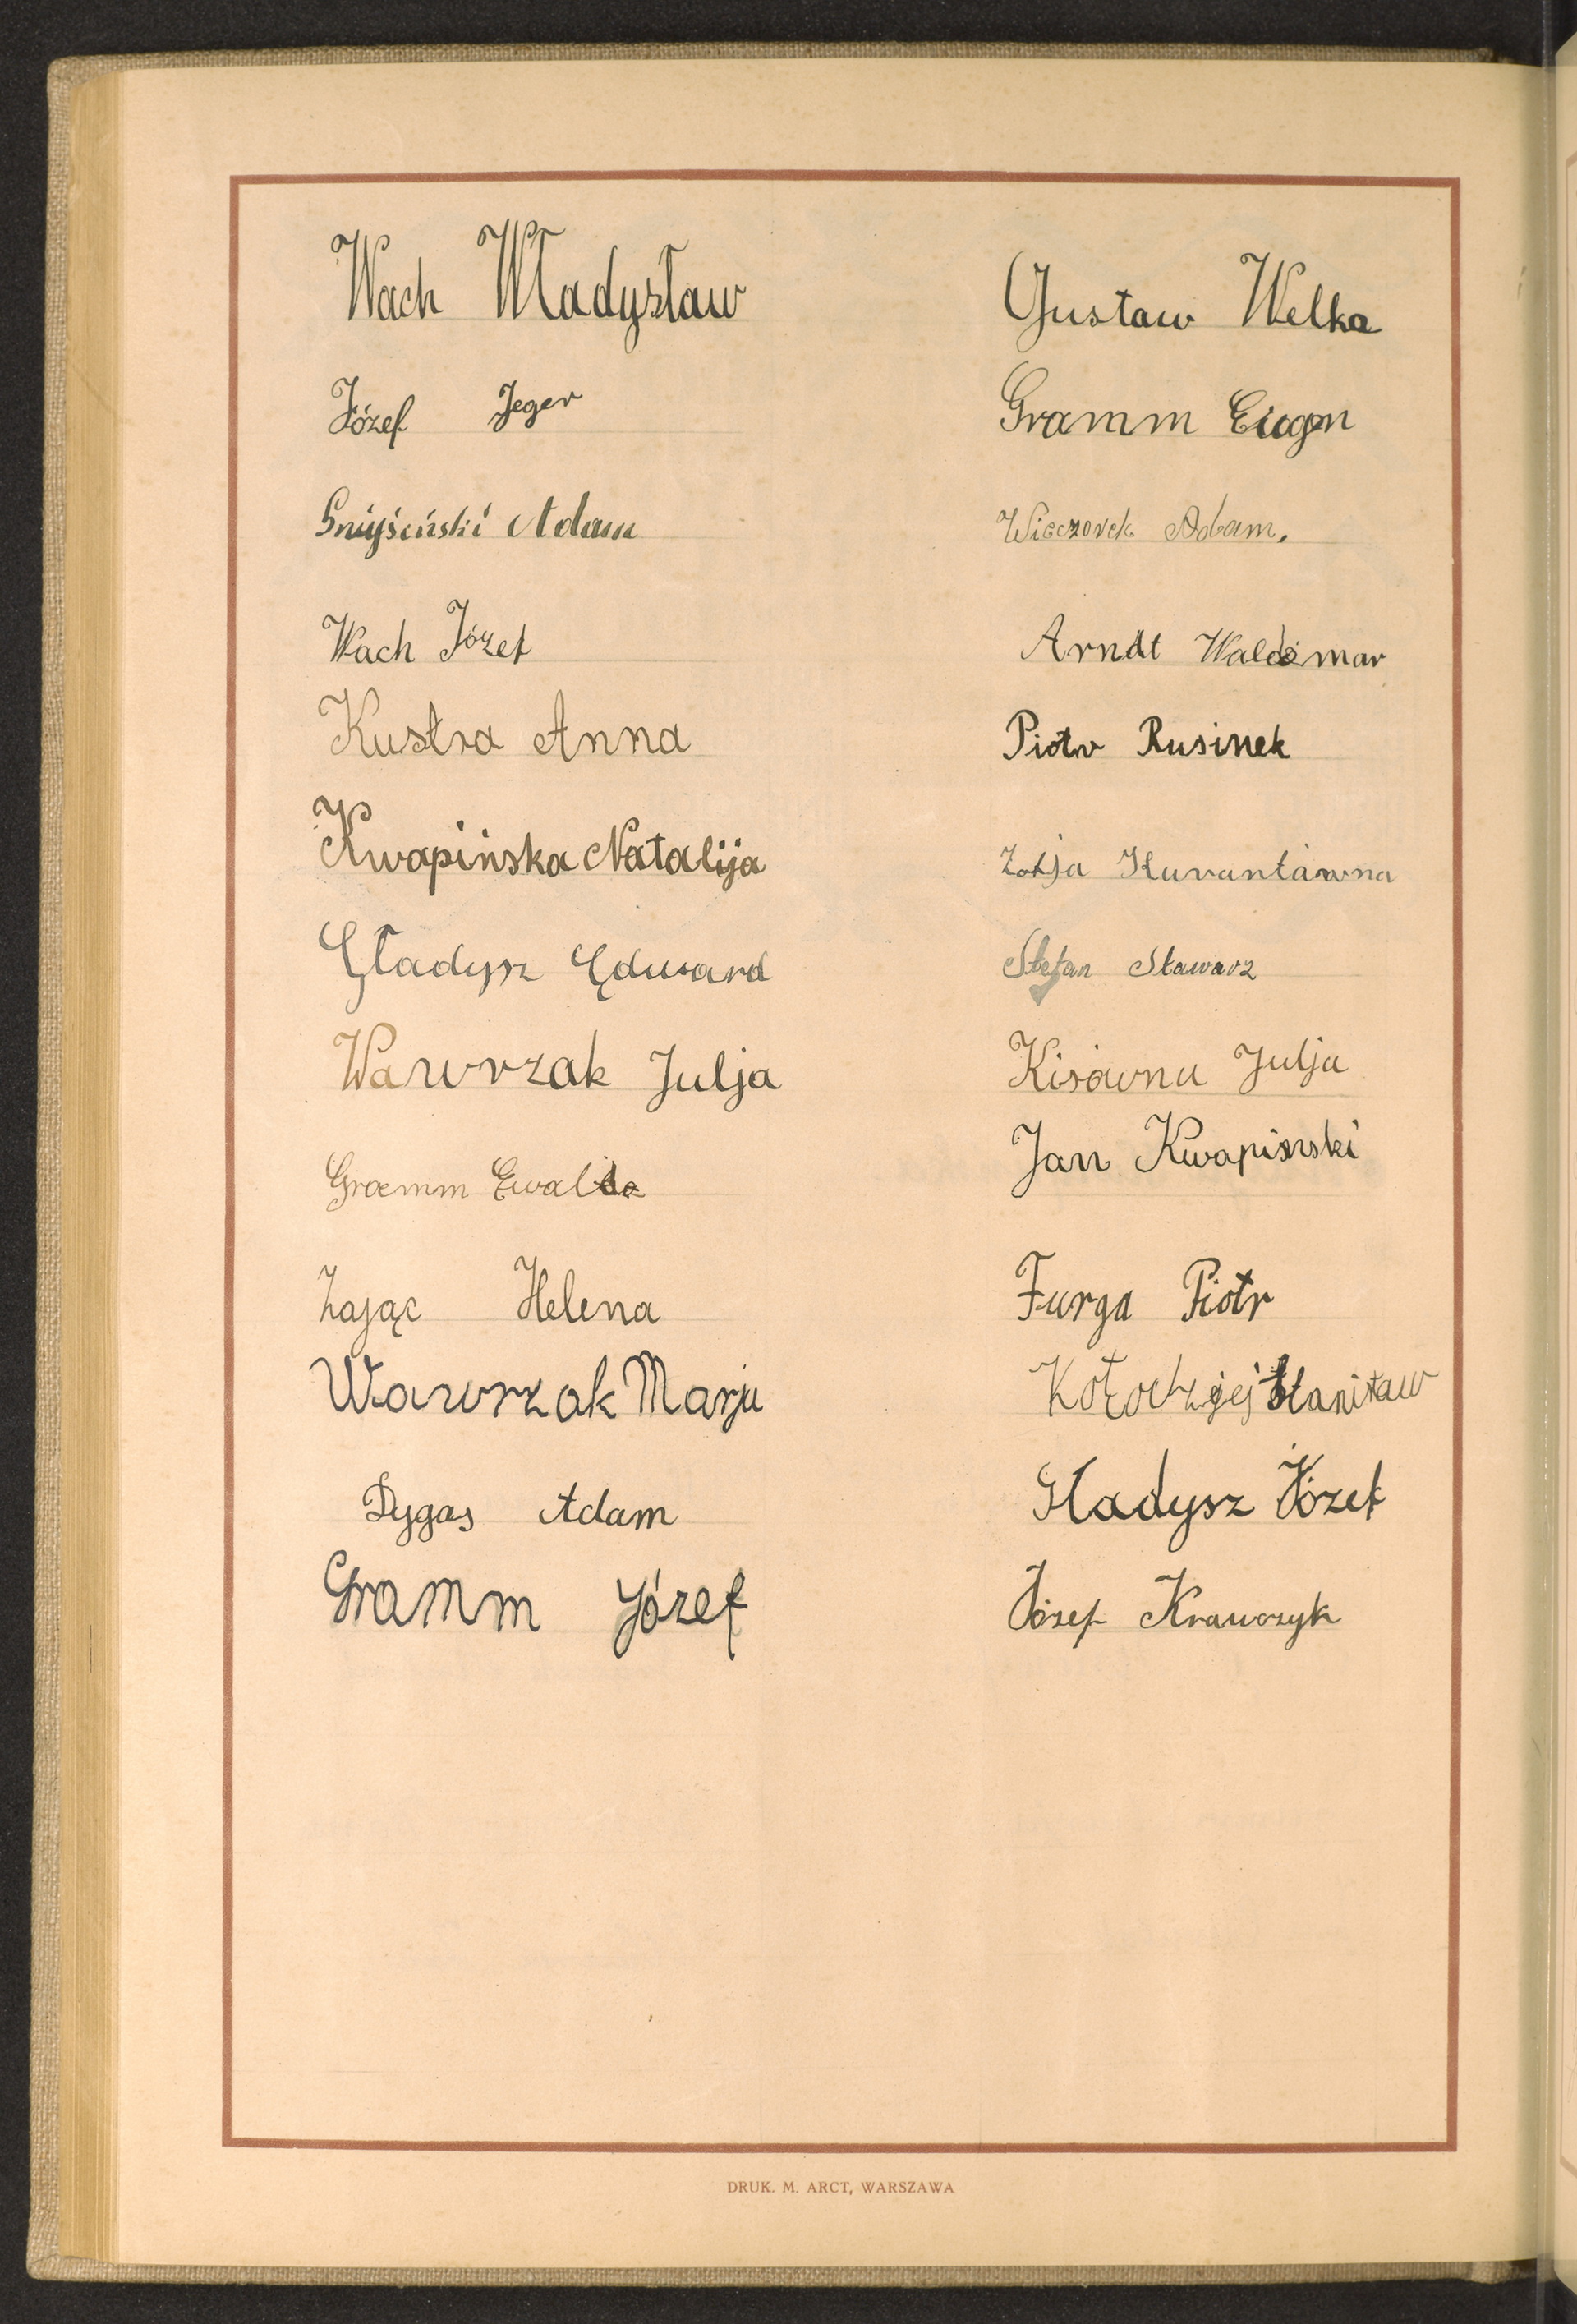 Wach Władysław
Józef Jeger
Adam
Wach Józef
Kustra Anna
Kwapińska Natalija
Gładysz Edward
Wawrzak Julja
Gramm Ewalda
Zając Helena
Wawrzak Marja
Dygas Adam
Gramm Józef
Gustaw Welka
Gramm Eugen
Wieczorek Adam.
Arndt Waldemar
Piotr Rusinek
Zofja Kurantówna
Stefan Sławarz
Kisówna Julja
Jan Kwapiński
Furga Piotr
Kołodziej Stanisław
Gładysz Józef
Józef Krawczyk
DRUK. M. ARCT, WARSZAWA